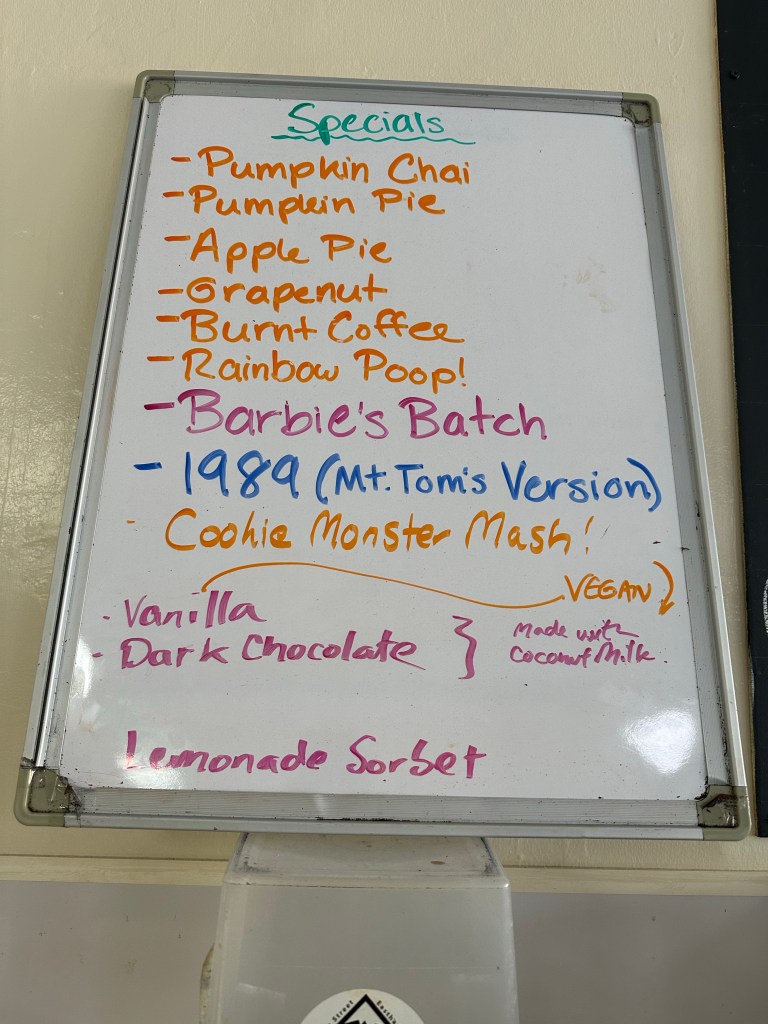 Specials
- Pumpkin Chai
- Pumpkin Pie
- Apple Pie
- Grapenut
- Burnt Coffee
- Rainbow Poop!
- Barbie's Batch
- 1989 (Mt. Tom's Version)
- Cookie Monster Mash!
VEGAN
- Vanilla
- Dark Chocolate
Made with
Coconut Milk.
Lemonade Sorbet
Street